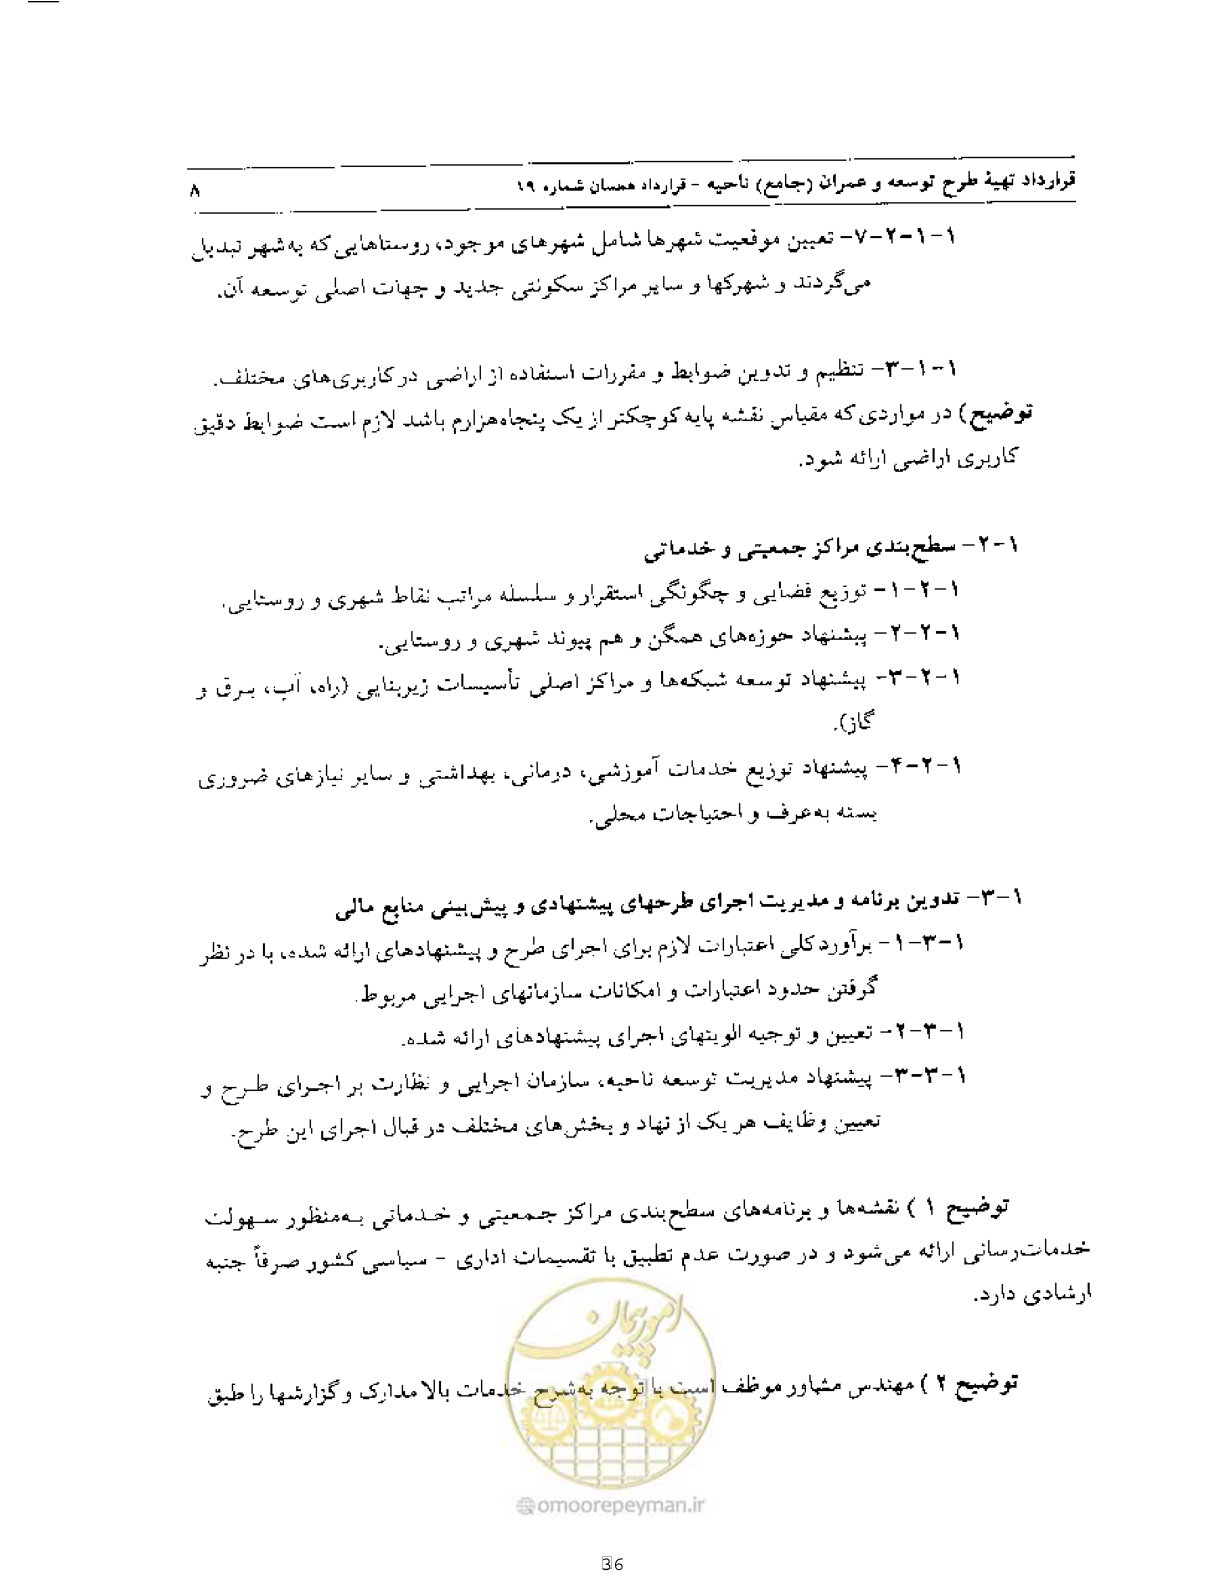 قرارداد تهیهٔ طرح توسعه و عمران (جامع) ناحیه - قرارداد همسان شماره ۱۹
۸
۱-۱-۲-۷- تعیین موقعیت شهرها شامل شهرهای موجود، روستاهایی که به‌شهر تبدیل
می‌گردند و شهرکها و سایر مراکز سکونتی جدید و جهات اصلی توسعه آن.
۱-۱-۳- تنظیم و تدوین ضوابط و مقررات استفاده از اراضی در کاربری‌های مختلف.
توضیح) در مواردی که مقیاس نقشه پایه کوچکتر از یک پنجاه‌هزارم باشد لازم است ضوابط دقیق
کاربری اراضی ارائه شود.
۱-۲- سطح‌بندی مراکز جمعیتی و خدماتی
۱-۲-۱- توزیع فضایی و چگونگی استقرار و سلسله مراتب نقاط شهری و روستایی.
۱-۲-۲- پیشنهاد حوزه‌های همگن و هم پیوند شهری و روستایی.
۱-۲-۳- پیشنهاد توسعه شبکه‌ها و مراکز اصلی تأسیسات زیربنایی (راه، آب، برق و
گاز).
۱-۲-۴- پیشنهاد توزیع خدمات آموزشی، درمانی، بهداشتی و سایر نیازهای ضروری
بسته به‌عرف و احتیاجات محلی.
۱-۳- تدوین برنامه و مدیریت اجرای طرحهای پیشنهادی و پیش‌بینی منابع مالی
۱-۳-۱- برآورد کلی اعتبارات لازم برای اجرای طرح و پیشنهادهای ارائه شده، با در نظر
گرفتن حدود اعتبارات و امکانات سازمانهای اجرایی مربوط.
۱-۳-۲- تعیین و توجیه الویتهای اجرای پیشنهادهای ارائه شده.
۱-۳-۳- پیشنهاد مدیریت توسعه ناحیه، سازمان اجرایی و نظارت بر اجرای طرح و
تعیین وظایف هر یک از نهاد و بخش‌های مختلف در قبال اجرای این طرح.
توضیح ۱ ) نقشه‌ها و برنامه‌های سطح‌بندی مراکز جمعیتی و خدماتی به‌منظور سهولت
خدمات‌رسانی ارائه می‌شود و در صورت عدم تطبیق با تقسیمات اداری - سیاسی کشور صرفاً جنبه
ارشادی دارد.
توضیح ۲ ) مهندس مشاور موظف است با توجه به‌شرح خدمات بالا مدارک و گزارشها را طبق
امور پیمان
@omoorepeyman.ir
36